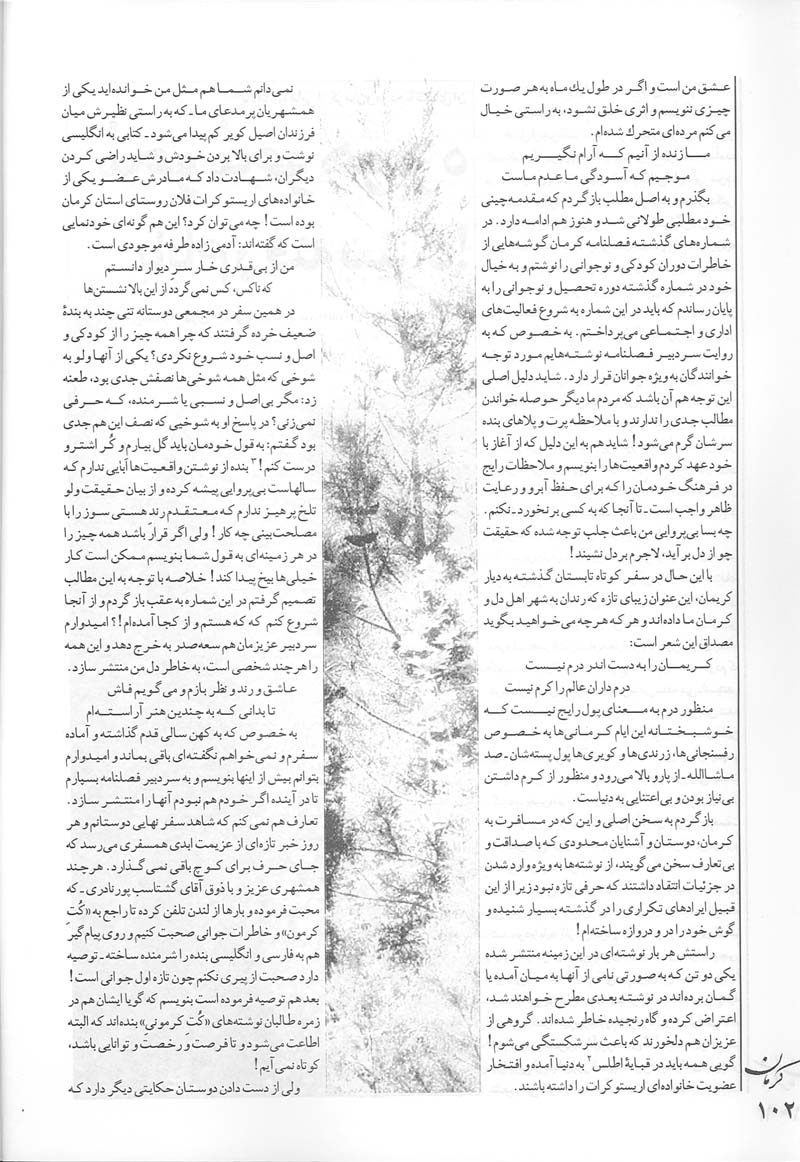 عشق من است و اگر در طول يك ماه به هر صورت
چيزی ننويسم و اثری خلق نشود، به راستی خيال
می‌كنم مرده‌ای متحرك شده‌ام.
ما زنده از آنيم كه آرام نگيريم
موجيم كه آسودگی ما عدم ماست
بگذرم و به اصل مطلب بازگردم كه مقدمه‌چينی
خود مطلبی طولانی شد و هنوز هم ادامه دارد. در
شماره‌های گذشته فصلنامه كرمان گوشه‌هايی از
خاطرات دوران كودكی و نوجوانی را نوشتم و به خيال
خود در شماره گذشته دوره تحصيل و نوجوانی را به
پايان رساندم كه بايد در اين شماره به شروع فعاليت‌های
اداری و اجتماعی می‌پرداختم. به خصوص كه به
روايت سردبير فصلنامه نوشته‌هايم مورد توجه
خوانندگان به ويژه جوانان قرار دارد. شايد دليل اصلی
اين توجه هم آن باشد كه مردم ما ديگر حوصله خواندن
مطالب جدی را ندارند و با ملاحظه پرت و پلاهای بنده
سرشان گرم می‌شود! شايد هم به اين دليل كه از آغاز با
خود عهد كردم واقعيت‌ها را بنويسم و ملاحظات رايج
در فرهنگ خودمان را كه برای حفظ آبرو و رعايت
ظاهر واجب است ـ تا آنجا كه به كسی برنخورد ـ نكنم.
چه بسا بی‌پروايی من باعث جلب توجه شده كه حقيقت
چو از دل برآيد، لاجرم بر دل نشيند!
با اين حال در سفر كوتاه تابستان گذشته به ديار
كريمان، اين عنوان زيبای تازه كه رندان به شهر اهل دل و
كرمان ما داده‌اند و هر كه هر چه می‌خواهيد بگويد
مصداق اين شعر است:
كريمان را به دست اندر درم نيست
درم داران عالم را كرم نيست
منظور درم به معنای پول رايج نيست كه
خوشبختانه اين ايام كرمانی‌ها به خصوص
رفسنجانی‌ها، زرندی‌ها و كويری‌ها پول پسته‌شان ـ صد
ماشاالله ـ از پارو بالا می‌رود و منظور از كرم داشتن
بی‌نياز بودن و بی‌اعتنايی به دنياست.
بازگردم به سخن اصلی و اين كه در مسافرت به
كرمان، دوستان و آشنايان محدودی كه با صداقت و
بی‌تعارف سخن می‌گويند، از نوشته‌ها به ويژه وارد شدن
در جزئيات انتقاد داشتند كه حرفی تازه نبود زيرا از اين
قبيل ايرادهای تكراری را در گذشته بسيار شنيده و
گوش خود را در و دروازه ساخته‌ام!
راستش هر بار نوشته‌ای در اين زمينه منتشر شده
يكی دو تن كه به صورتی نامی از آنها به ميان آمده يا
گمان برده‌اند در نوشته بعدی مطرح خواهند شد،
اعتراض كرده و گاه رنجيده خاطر شده‌اند. گروهی از
عزيزان هم دلخورند كه باعث سرشكستگی می‌شوم!
گويی همه بايد در قباية اطلس۲ به دنيا آمده و افتخار
عضويت خانواده‌ای اريستوكرات را داشته باشند.
نمی‌دانم شما هم مثل من خوانده‌ايد يكی از
همشهريان پر مدعای ما ـ كه به راستی نظيرش ميان
فرزندان اصيل كوير كم پيدا می‌شود ـ كتابی به انگليسی
نوشت و برای بالا بردن خودش و شايد راضی كردن
ديگران، شهادت داد كه مادرش عضو يكی از
خانواده‌های اريستوكرات فلان روستای استان كرمان
بوده است! چه می‌توان كرد؟ اين هم گونه‌ای خودنمايی
است كه گفته‌اند: آدمی زاده طرفه موجودی است.
من از بی‌قدری خار سرِ ديوار دانستم
كه ناكس، كس نمی‌گردد از اين بالا نشستن‌ها
در همين سفر در مجمعی دوستانه تنی چند به بندهٔ
ضعيف خرده گرفتند كه چرا همه چيز را از كودكی و
اصل و نسب خود شروع نكردی؟ يكی از آنها ولو به
شوخی كه مثل همه شوخی‌ها نصفش جدی بود، طعنه
زد: مگر بی‌اصل و نسبی يا شرمنده، كه حرفی
نمی‌زنی؟ در پاسخ او به شوخيی كه نصف اين هم جدی
بود گفتم: به قول خودمان بايد گل بيارم و كُر اشترو
درست كنم!۳ بنده از نوشتن واقعيت‌ها اِبايی ندارم كه
سالهاست بی‌پروايی پيشه كرده و از بيان حقيقت ولو
تلخ پرهيز ندارم كه معتقدم رند هستی سوز را با
مصلحت‌بينی چه كار! ولی اگر قرار باشد همه چيز را
در هر زمينه‌ای به قول شما بنويسم ممكن است كار
خيلی‌ها بيخ پيدا كند! خلاصه با توجه به اين مطالب
تصميم گرفتم در اين شماره به عقب بازگردم و از آنجا
شروع كنم كه كه هستم و از كجا آمده‌ام!؟ اميدوارم
سردبير عزيزمان هم سعه‌صدر به خرج دهد و اين همه
را هر چند شخصی است، به خاطر دل من منتشر سازد.
عاشق و رند و نظر بازم و می‌گويم فاش
تا بدانی كه به چندين هنر آراسته‌ام
به خصوص كه به كهن سالی قدم گذاشته و آماده
سفرم و نمی‌خواهم نگفته‌ای باقی بماند و اميدوارم
بتوانم بيش از اينها بنويسم و به سردبير فصلنامه بسپارم
تا در آينده اگر خودم هم نبودم آنها را منتشر سازد.
تعارف هم نمی‌كنم كه شاهد سفر نهايی دوستانم و هر
روز خبر تازه‌ای از عزيمت ابدی همسفری می‌رسد كه
جای حرف برای كوچ باقی نمی‌گذارد. هر چند
همشهری عزيز و با ذوق آقای گشتاسب پورنادری ـ كه
محبت فرموده و بارها از لندن تلفن كرده تا راجع به «كُتِ
كرمون» و خاطرات جوانی صحبت كنيم و روی پيام‌گير
هم به فارسی و انگليسی بنده را شرمنده ساخته ـ توصيه
دارد صحبت از پيری نكنم چون تازه اول جوانی است!
بعد هم توصيه فرموده است بنويسم كه گويا ايشان هم در
زمره طالبان نوشته‌های «كُتِ كرمونی» بنده‌اند كه البته
اطاعت می‌شود و تا فرصت و رخصت و توانايی باشد،
كوتاه نمی‌آيم!
ولی از دست دادن دوستان حكايتی ديگر دارد كه
كرمان
۱۰۲